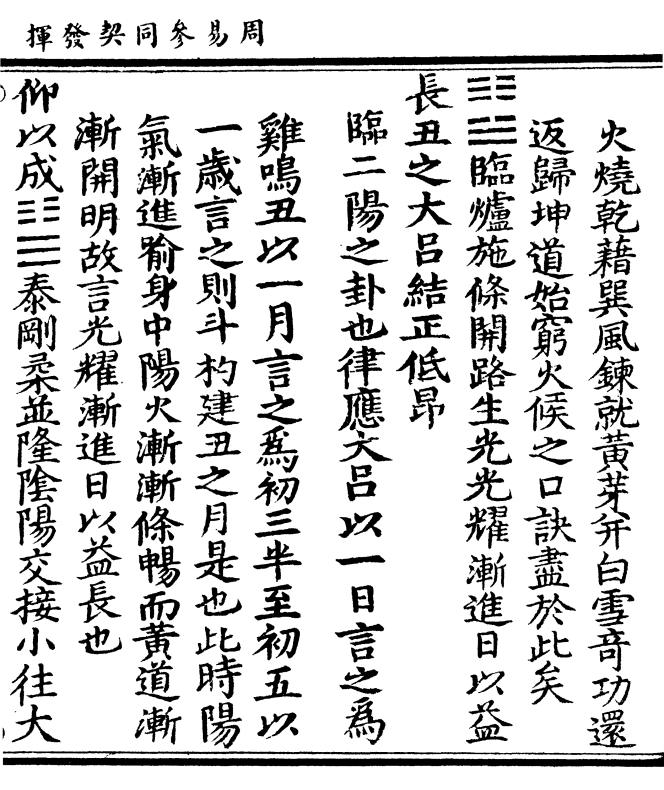 周易參同契發揮
火燒乾藉巽風鍊就黃芽并白雪竒功還
返歸坤道始窮火候之口訣盡於此矣
䷒臨爐施條開路生光光耀漸進日以益
長丑之大吕結正低昂
臨二陽之卦也律應大吕以一日言之爲
雞鳴丑以一月言之爲初三半至初五以
一歲言之則斗杓建丑之月是也此時陽
氣漸進喻身中陽火漸漸條暢而黃道漸
漸開明故言光耀漸進日以益長也
仰以成䷊泰剛柔並隆隂陽交接小往大